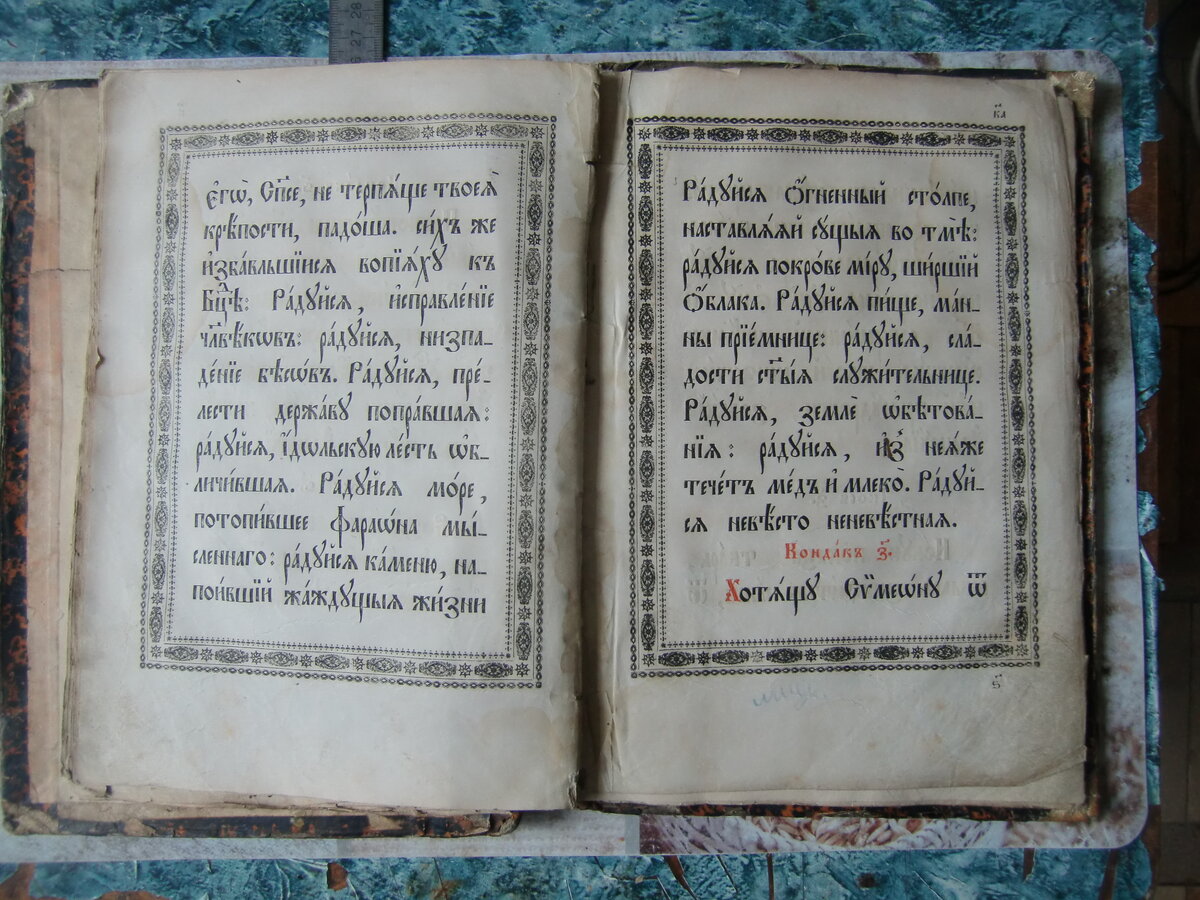 28
27
є҆гѡ̀, Сп҃се, не терпѧ́ще твоеѧ̀
крѣ́пости, падо́ша. си́хъ же
и҆зба́вльшїисѧ вопїѧ́ху къ
Бц҃ѣ: Ра́дуйсѧ, и҆справле́нїе
чл҃вѣ́кѡвъ: ра́дуйсѧ, низпа-
де́нїе бѣсѡ́въ. Ра́дуйсѧ, пре́-
лести держа́ву попра́вшаѧ:
ра́дуйсѧ, і҆́дѡльскую ле́сть ѡ҆б-
личи́вшаѧ. Ра́дуйсѧ мо́ре,
потопи́вшее фараѡ́на мы́-
сленнаго: ра́дуйсѧ ка́меню, на-
пои́вшїй жа́ждущыѧ жи́зни
к҃а
Ра́дуйсѧ О҆́гненный сто́лпе,
наставлѧ́ѧй су́щыѧ во тмѣ̀:
ра́дуйсѧ покро́ве мі́ру, ши́ршїй
О҆́блака. Ра́дуйсѧ пи́ще, ма́н-
ны прїе́мнице: ра́дуйсѧ, сла́-
дости ст҃ы́ѧ служи́тельнице.
Ра́дуйсѧ, землѐ ѡ҆бѣтова́-
нїѧ: ра́дуйсѧ, и҆з̾ неѧ́же
тече́тъ ме́дъ и҆ млеко̀. Ра́дуй-
сѧ невѣ́сто неневѣ́стнаѧ.
Конда́къ з҃.
Хотѧ́щу Сѷмеѡ́ну ѿ
ѕ҃